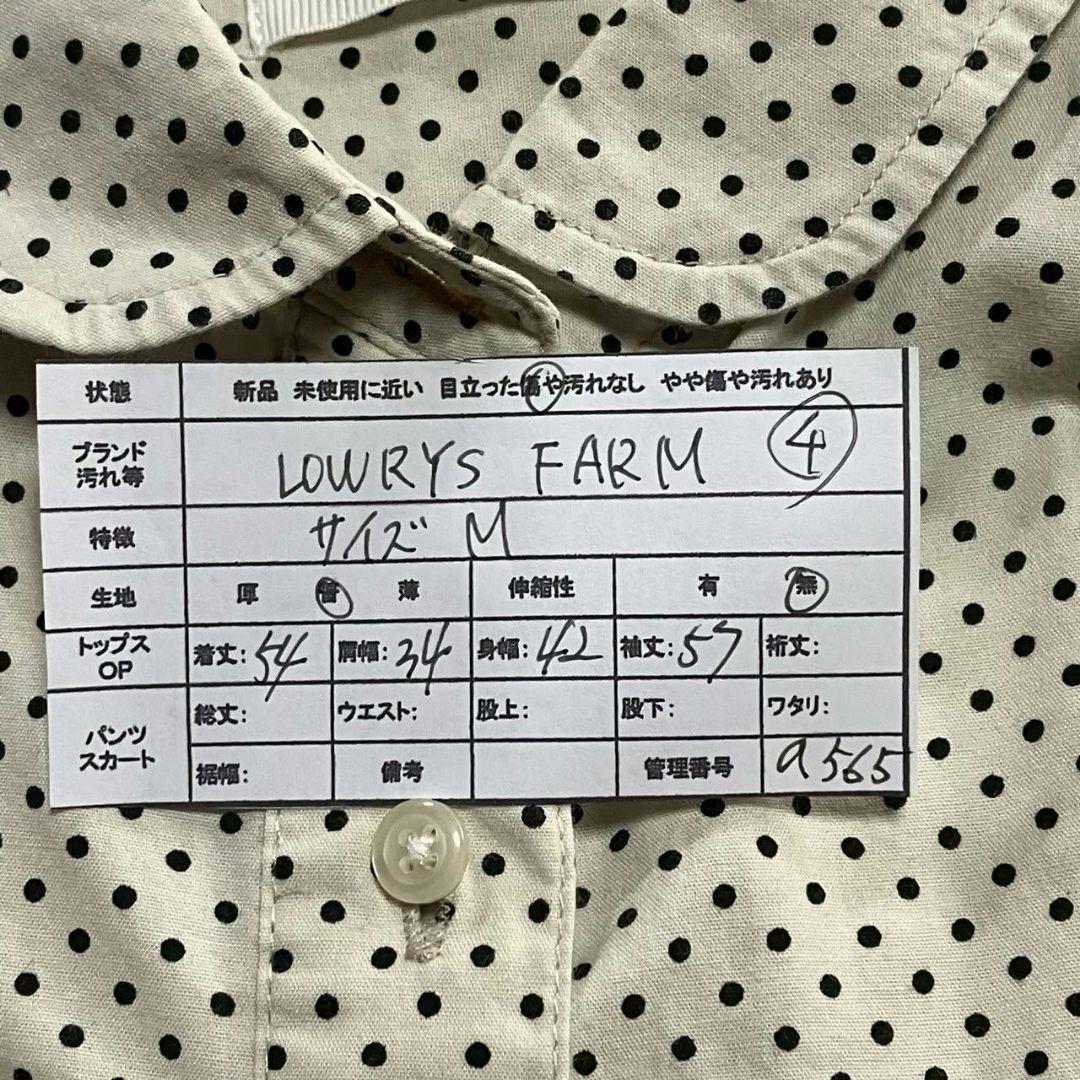 状態 新品 未使用に近い 目立った傷や汚れなし やや傷や汚れあり
ブランド
汚れ等 LOWRYS FARM ④
特徴 サイズ M
生地 厚 普 薄 伸縮性 有 無
トップス
OP 着丈:54 肩幅:34 身幅:42 袖丈:57 裄丈:
パンツ
スカート 総丈: ウエスト: 股上: 股下: ワタリ:
裾幅: 備考 管理番号 a565